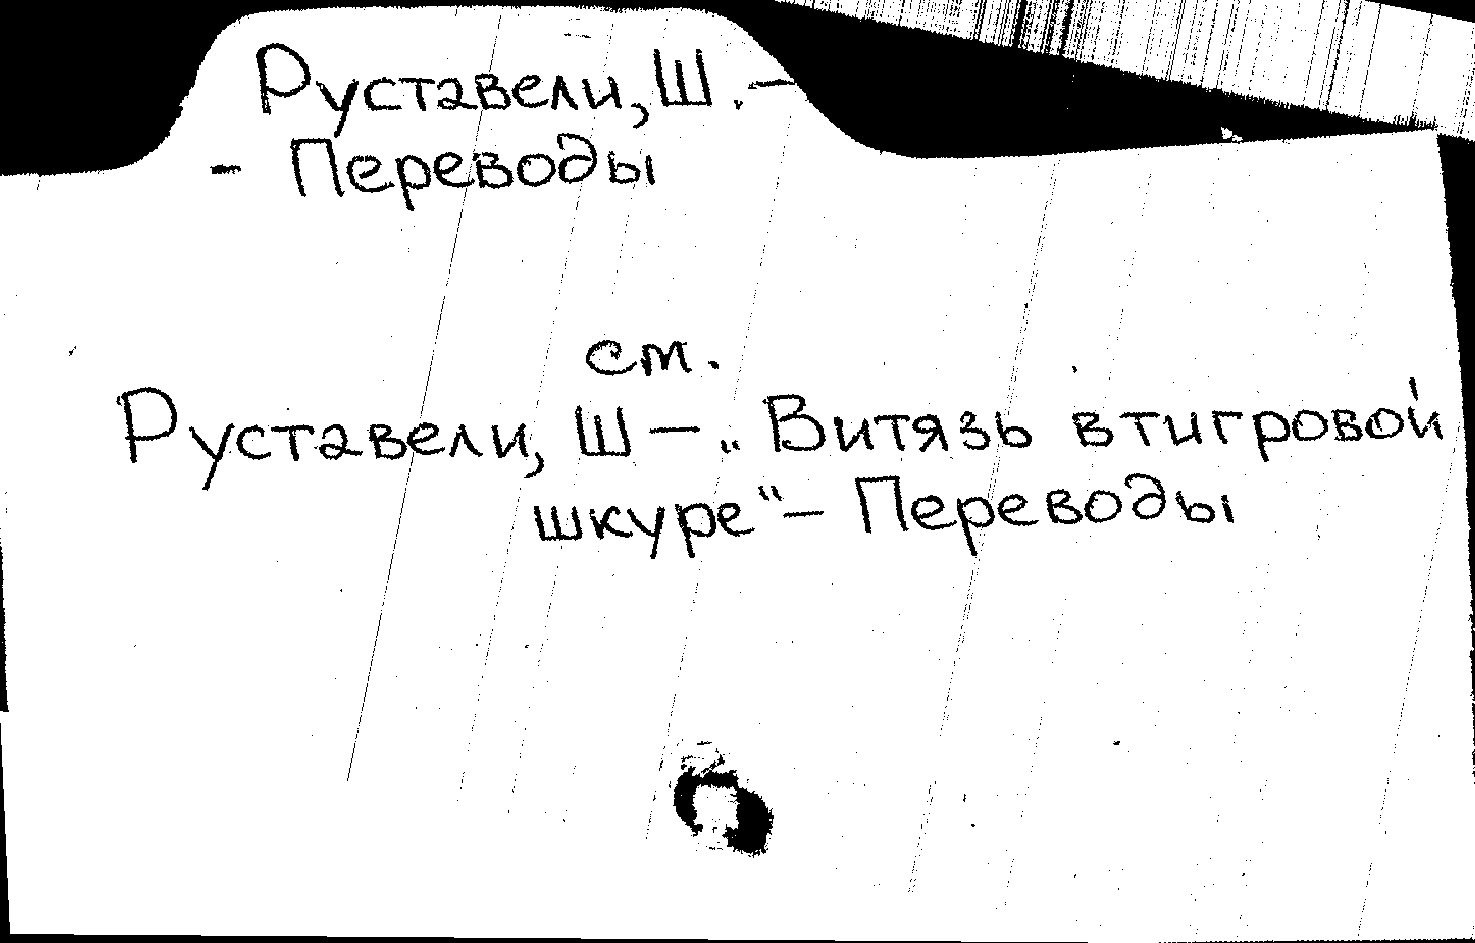 Руставели, Ш. –
– Переводы
см.
Руставели, Ш – „Витязь в тигровой
шкуре“ – Переводы